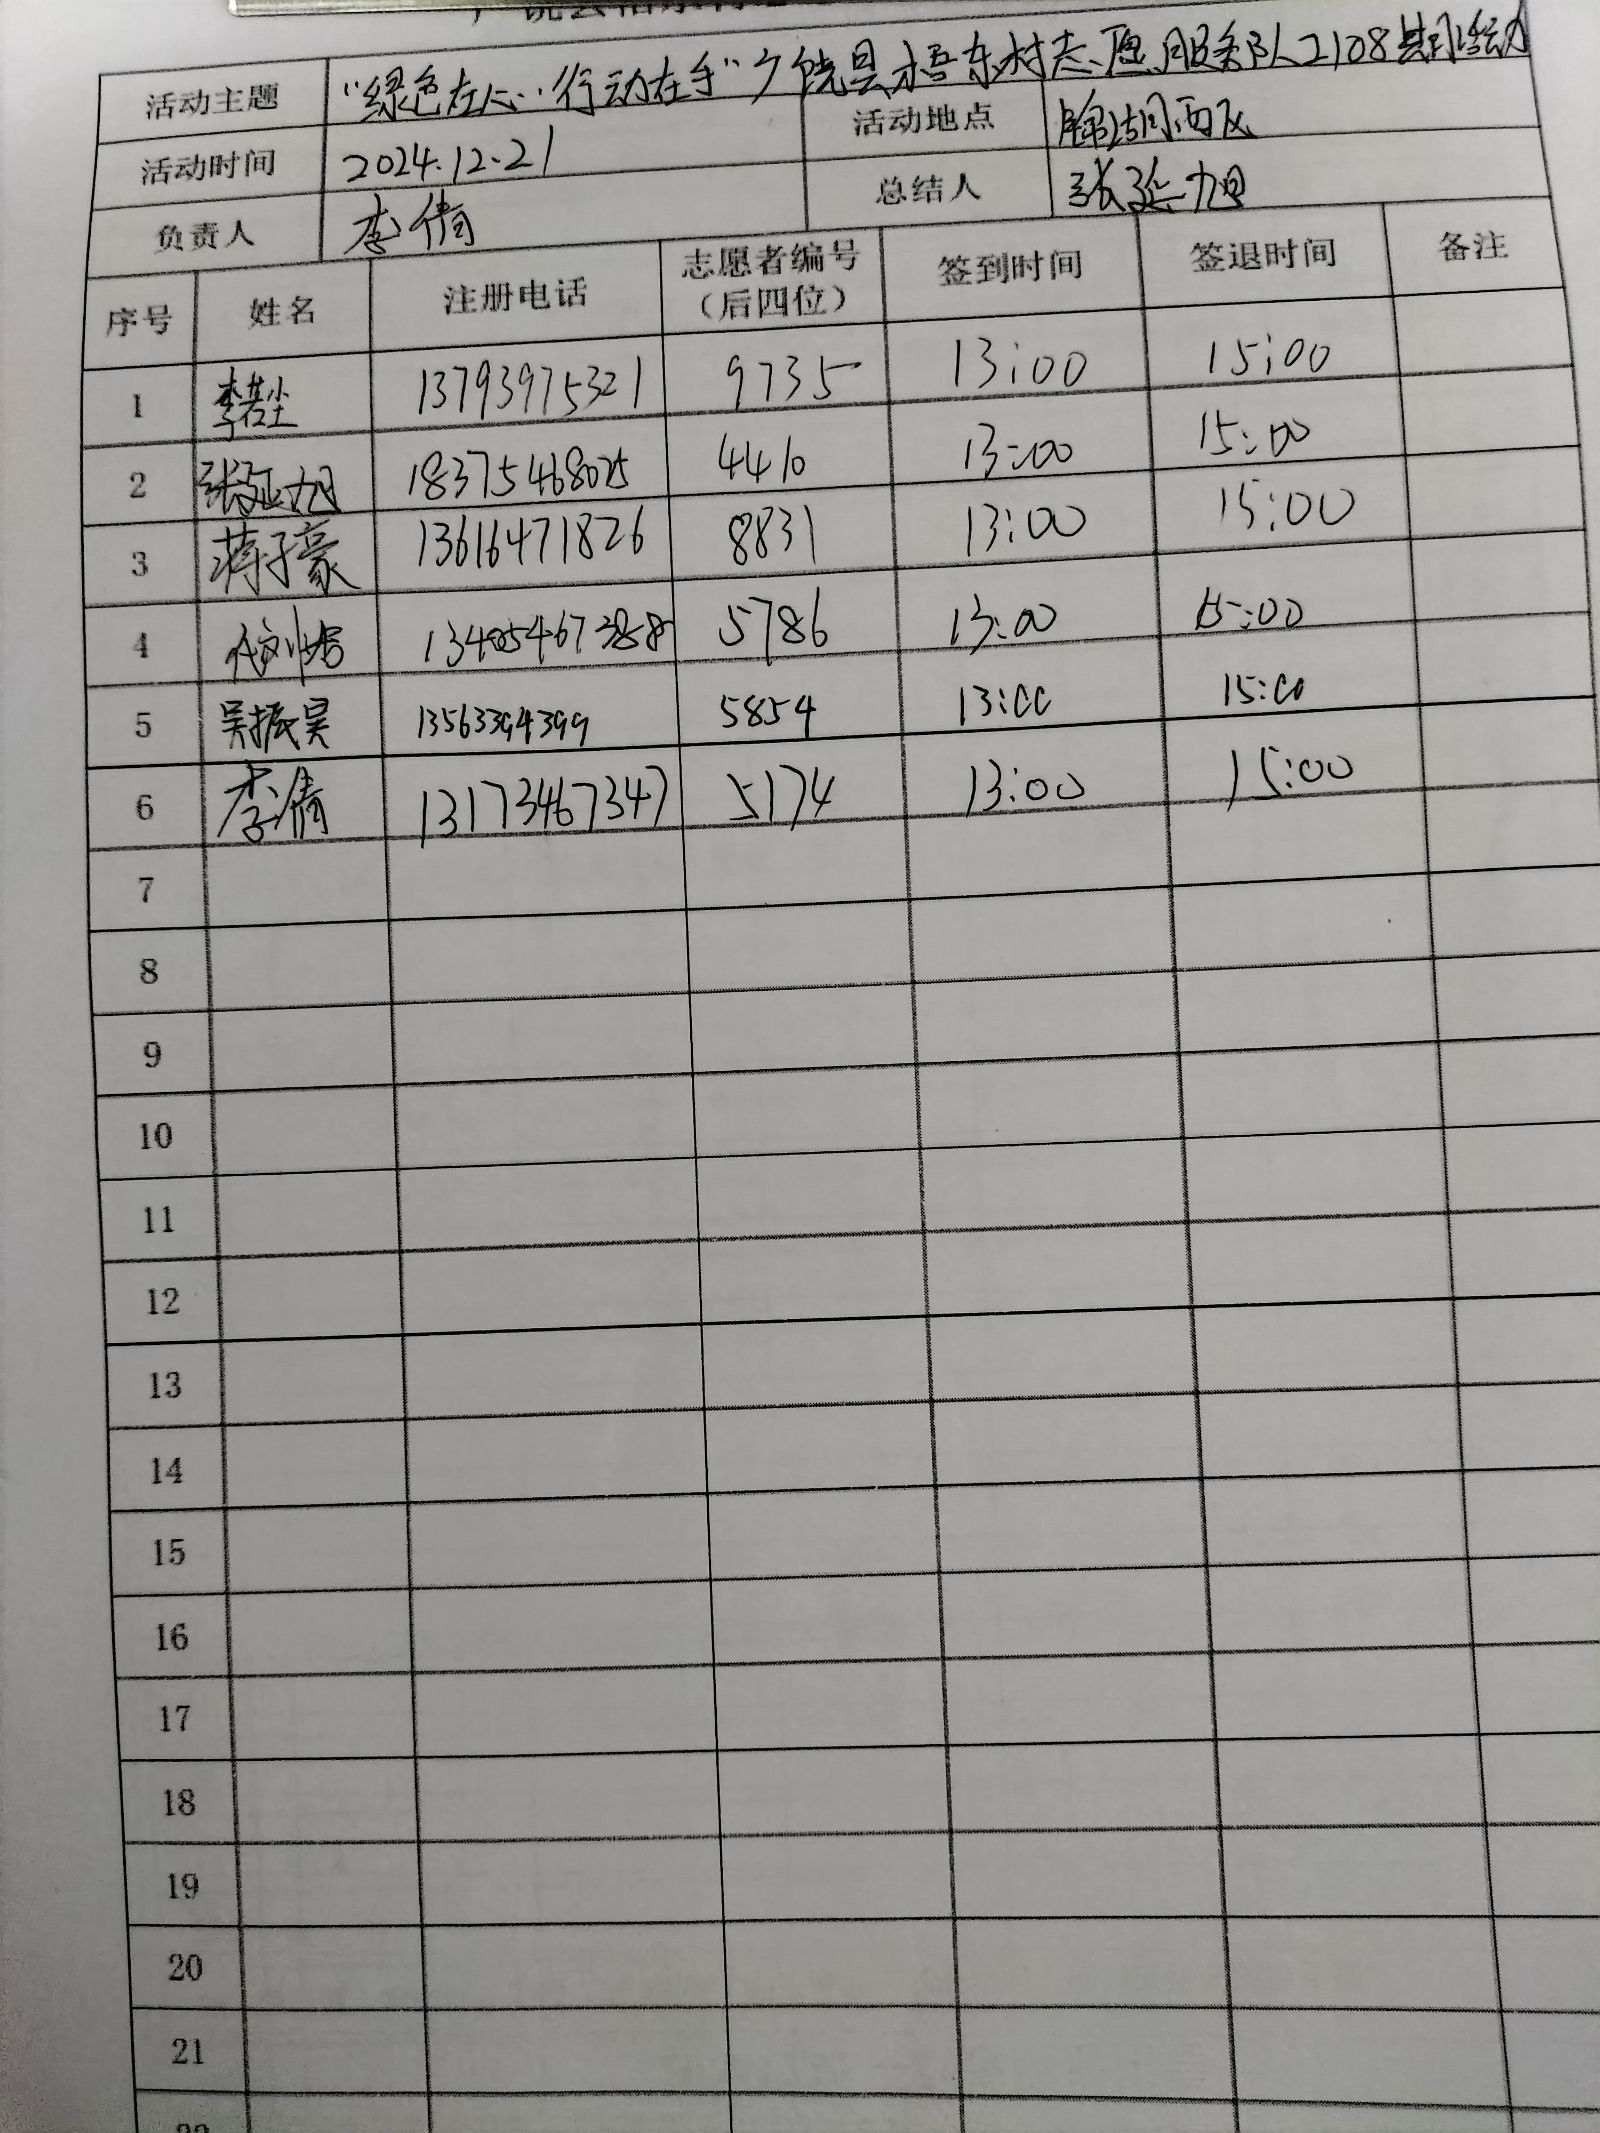 活动主题 "绿色在心，行动在手"广饶县梧东村志愿服务队2108
活动时间 2024.12.21 活动地点
负责人 李倩 总结人 张延旭
序号 姓名 注册电话 志愿者编号（后四位） 签到时间 签退时间 备注
1 李若尘 13793975321 9735 13:00 15:00
2 张延旭 18375468025 4410 13:00 15:00
3 蒋子豪 13616471826 8831 13:00 15:00
4 5786 13:00 15:00
5 吴振昊 13563394399 5854 13:00 15:00
6 李倩 13173467347 5174 13:00 15:00
7
8
9
10
11
12
13
14
15
16
17
18
19
20
21